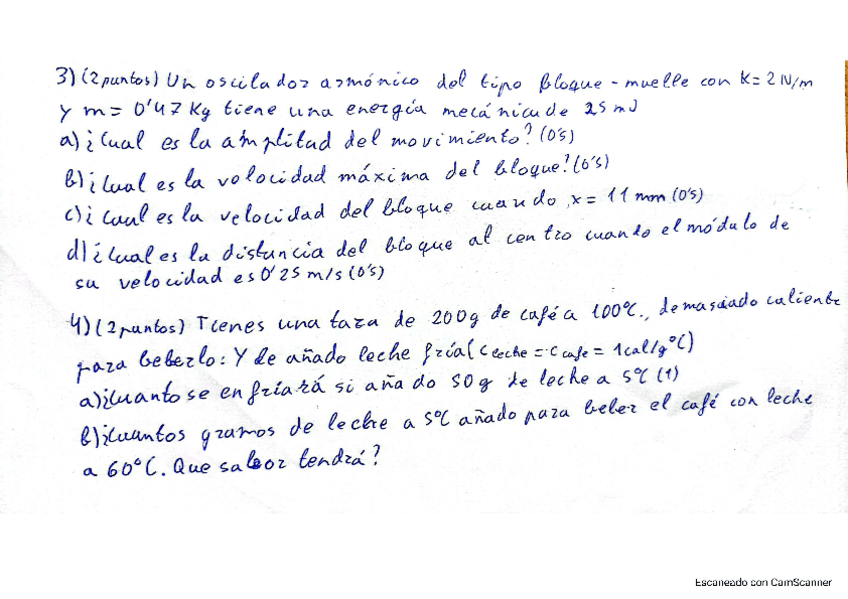 3) (2 puntos) Un oscilador armónico del tipo bloque-muelle con K=2 N/m
y m= 0'47 Kg tiene una energía mecánica de 25 mJ
a) ¿Cual es la amplitud del movimiento? (0's)
b) ¿Cual es la volocidad máxima del bloque? (0's)
c) ¿Caul es la velocidad del bloque cuando x= 11 mm (0's)
d) ¿Cual es la distancia del bloque al centro cuando el módulo de
su velocidad es 0'25 m/s (0's)
4) (2 puntos) Tienes una taza de 200g de café a 100°C., demasciado caliente
para beberlo: Y de añado leche fría (c leche = c cafe = 1cal/g°C)
a) ¿Cuanto se enfriará si añado 50g de leche a 5°C (1)
b) ¿Cuantos gramos de leche a 5°C añado para beber el café con leche
a 60°C. Que sabor tendrá?
Escaneado con CamScanner